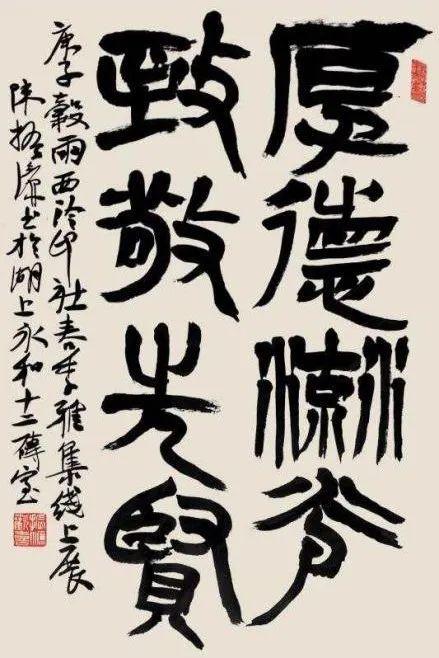 厚德流芳
致敬先賢
庚子穀雨西泠印社春季雅集线上展
陈振濂书於湖上永和十二磚室